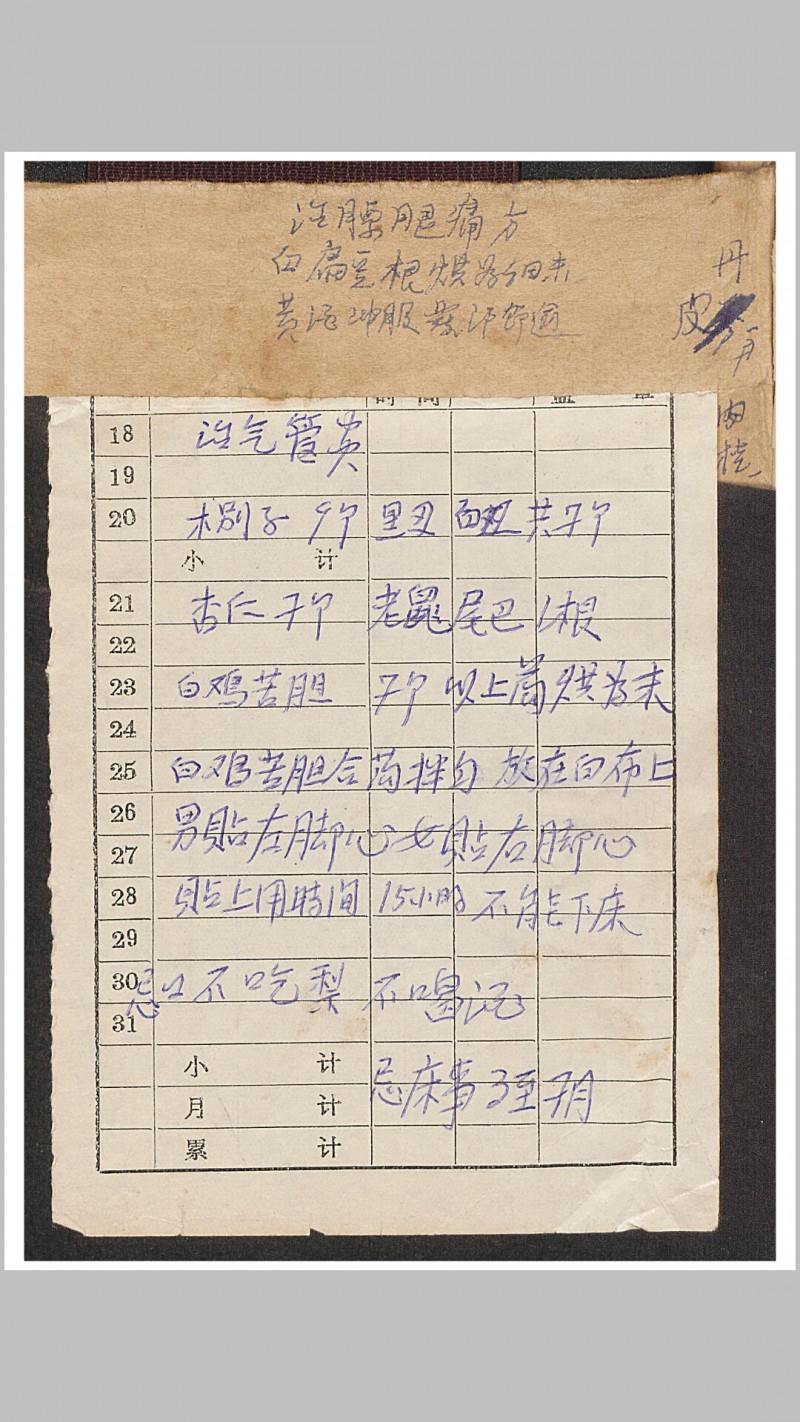 治腰腿痛方
白扁豆根烘为细末
黄酒冲服 汗
丹
皮
肉
桂
18 治气管炎
19
20 木别子 9个 黑丑 白丑 共7个
小 计
21 杏仁 7个 老鼠尾巴1根
22
23 白鸡苦胆 7个 以上药烘为末
24
25 白鸡苦胆合药拌匀 放在白布上
26 男贴左脚心 女贴右脚心
27
28 贴上用时间 15小时 不能下床
29
30 忌口不吃梨 不喝酒
31
小 计 忌床事 3至7月
月 计
累 计